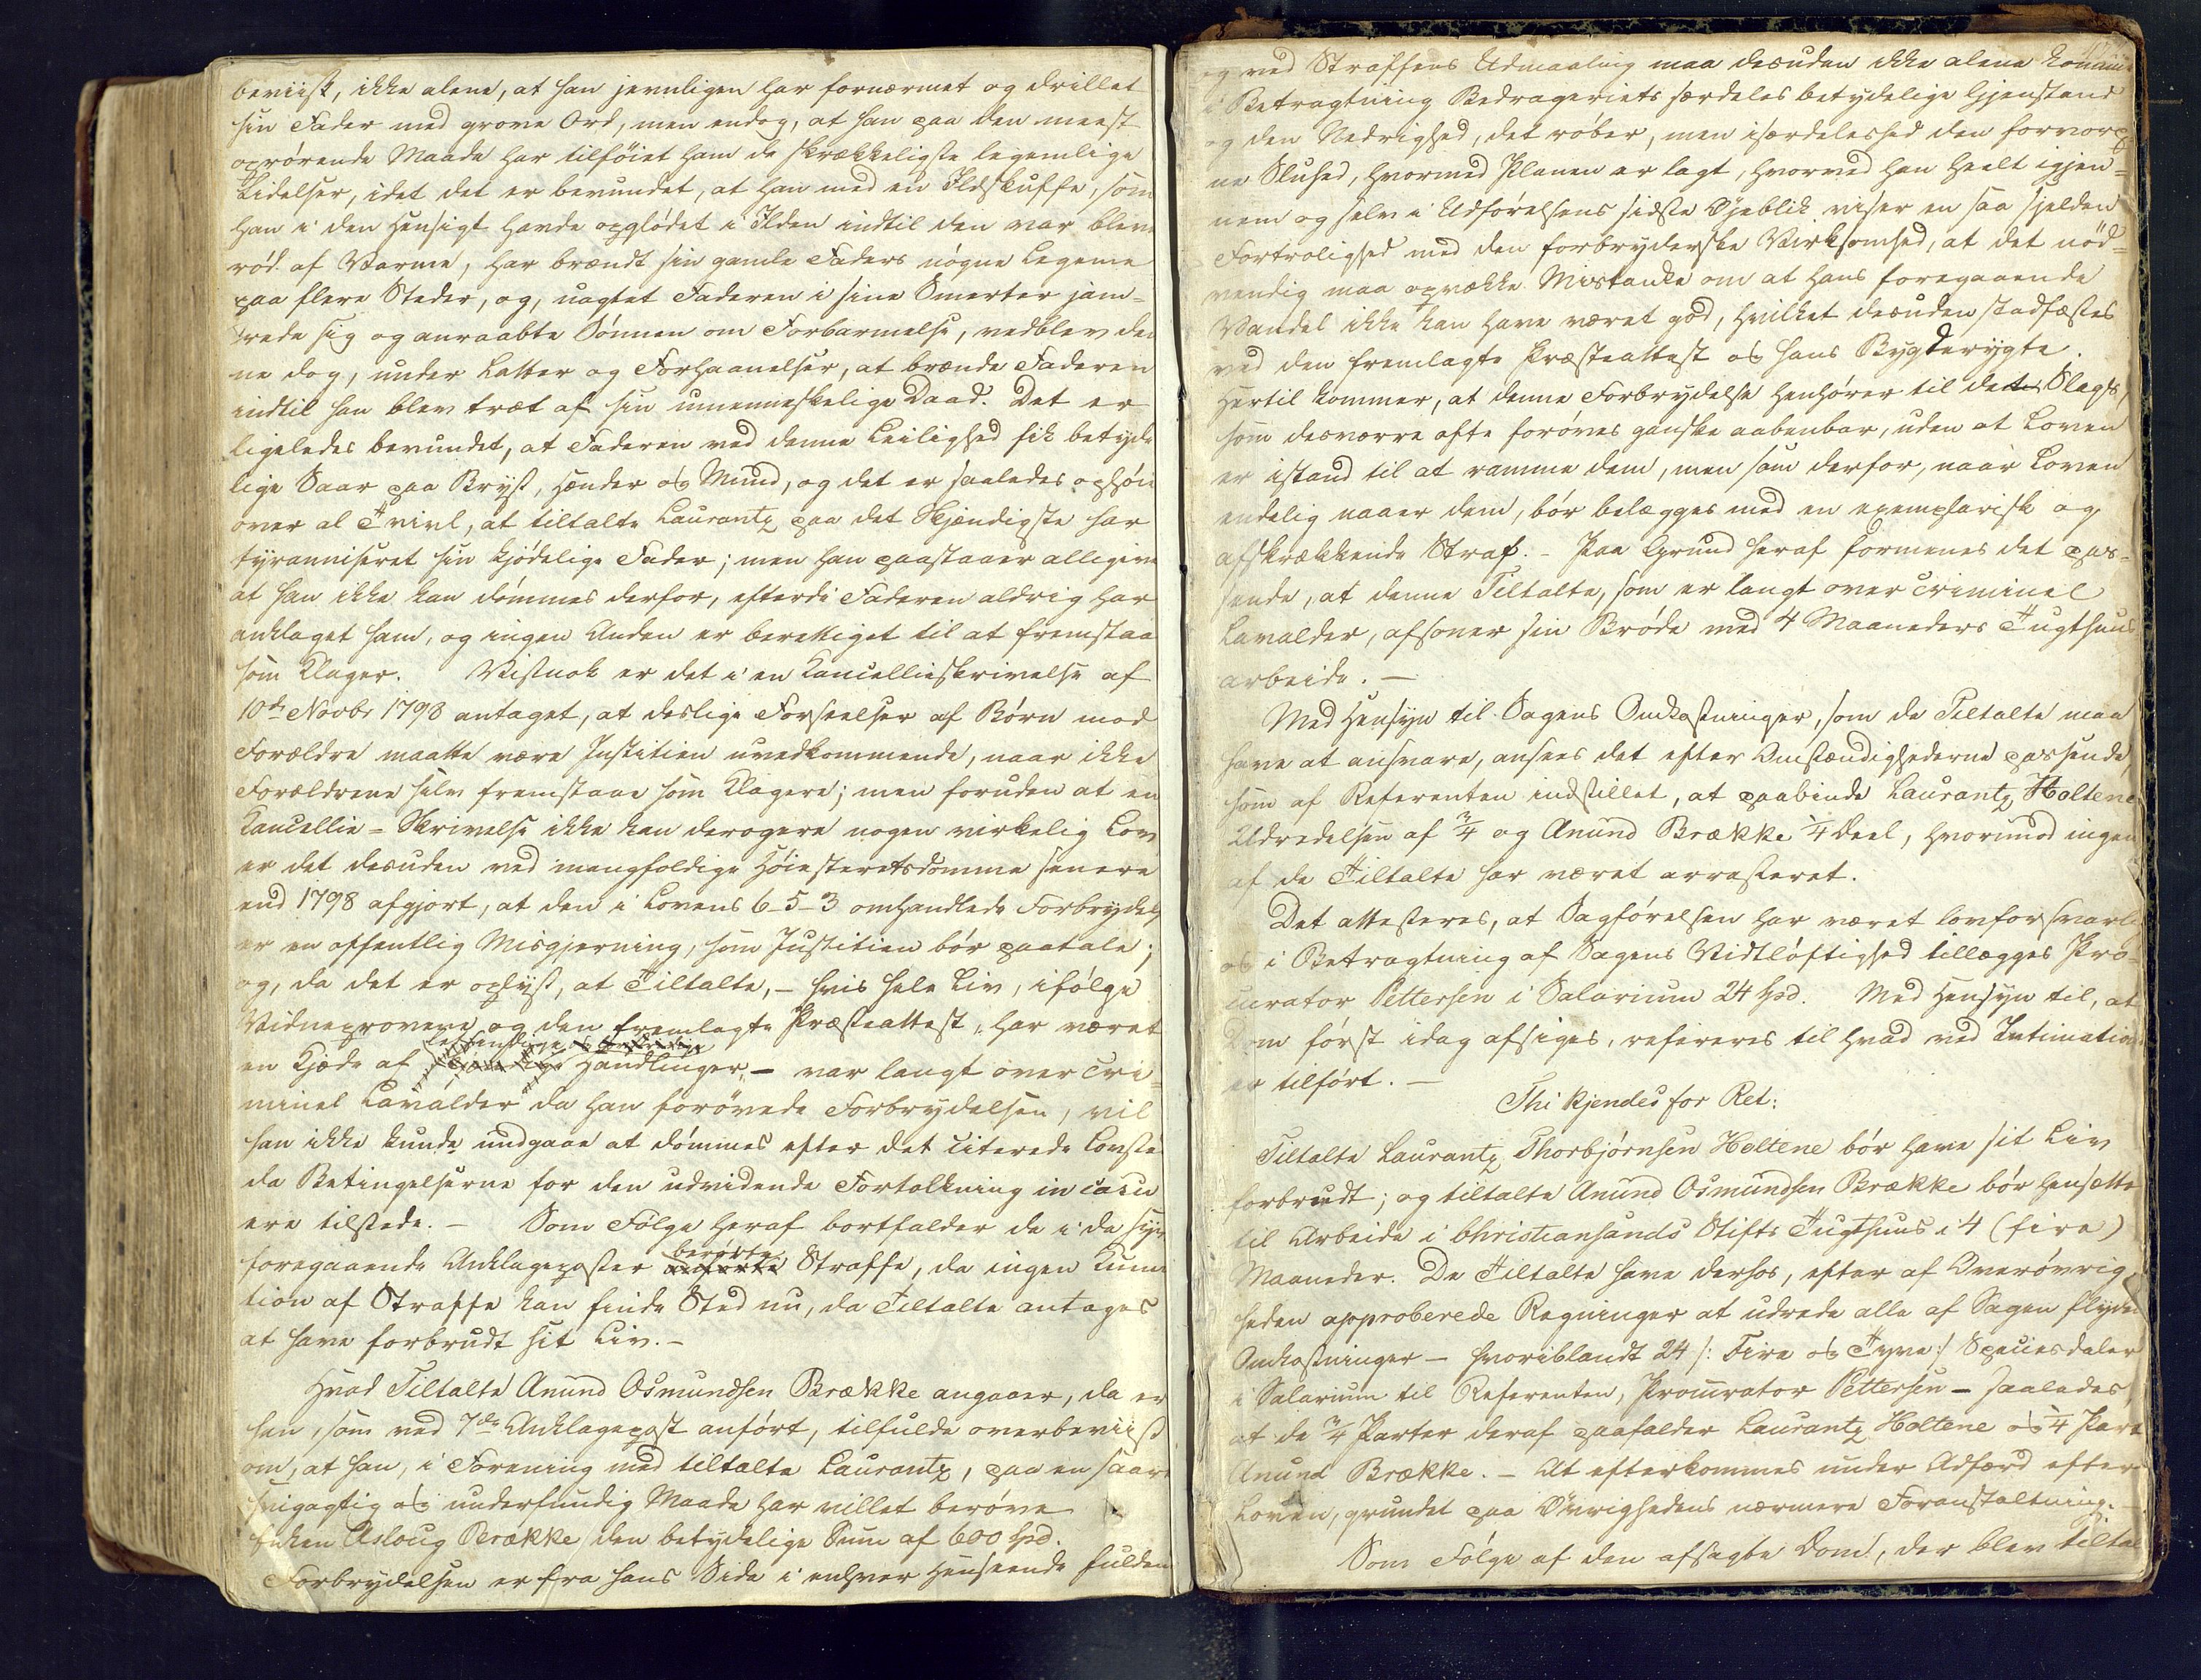 beviist, ikke alene, at han jevnligen har fornærmet og drillet
sin Fader med grove Ord, men endog, at han paa den meest
oprørende Maade har tilføiet ham de skrækkeligste legemlige
Lidelser, idet det er bevundet, at han med en Ildskuffe, som
han i den Hensigt havde opglødet i Ilden indtil den var bleven
rød af Varme, har brændt sin gamle Faders nøgne Legeme
paa flere Steder, og, uagtet Faderen i sine Smerter jam-
rede sig og anraabte Sønnen om Forbarmelse, vedblev den
ne dog, under Latter og Forhaanelser, at brænde Faderen
indtil han blev træt af sin umenneskelige Daad. Det er
ligeledes bevundet, at Faderen ved denne Leilighed fik betyde
lige Saar paa Bryst, Hænder og Mund, og det er saaledes ophøiet
over al Tvivl, at tiltalte Laurantz paa det Skjændigste har
tyranniseret sin kjødelige Fader; men han paastaaer alligevel
at han ikke kan dømmes derfor, efterdi Faderen aldrig har
anklaget ham, og ingen Anden er berettiget til at fremstaa
som Klager. Vistnok er det i en Cancellieskrivelse af
10de Novbr 1798 antaget, at deslige Forseelser af Børn mod
Forældre maatte være Justitien uvedkommende, naar ikke
Forældrene selv fremstaae som Klagere; men foruden at en
Cancellie-Skrivelse ikke kan derogere nogen virkelig Lov
er det desuden ved mangfoldige Høiesteretsdomme senere
end 1798 afgjort, at den i Lovens 6-5-3 omhandlede Forbrydels
er en offentlig Misgjerning, som Justitien bør paatale;
og, da det er oplyst, at Tiltalte, - hvis hele Liv, ifølge
Vidneprovene og den fremlagte Præsteattest, har været
en Kjæde af Handlinger, - var langt over Cri-
minel Lavalder da han forøvede Forbrydelsen, vil
han ikke kunde undgaae at dømmes efter det citerede Lovsted
da Betingelserne for den udvidende Fortolkning in casu
ere tilstede. - Som Følge heraf bortfalder de i de syv
foregaaende Anklageposter berørte Straffe, da ingen Cumu
tion af Straffe kan finde Sted nu, da Tiltalte antages
at have forbrudt sit Liv. -
Hvad Tiltalte Anund Osmundsen Brække angaaer, da er
han, som ved 7de Anklagepost anført, tilfulde overbeviist
om, at han, i Forening med tiltalte Laurantz, paa en saare
svigagtig og underfundig Maade har villet berøve
Enken Asloug Brække den betydelige Sum af 600 Spd.
Forbrydelsen er fra hans Side i enhver Henseende fulden
og ved Straffens Udmaaling maa desuden ikke alene komme
i Betragtning Bedrageriets særdeles betydelige Gjenstand
og den Nedrighed, det røber, men isærdeleshed den forvorp
ne Sluhed, hvormed Planen er lagt, hvorved han heelt igjen-
nem og selv i Udførelsens sidste Øjeblik viser en saa sjelden
Fortrolighed med den forbryderske Virksomhed, at det nød-
vendig maa opvække Mistanke om at hans foregaaende
Vandel ikke kan have været god, hvilket desuden stadfæstes
ved den fremlagte Præsteattest og hans Bygderygte.
Hertil kommer, at denne Forbrydelse henhører til det Slags,
som desværre ofte forøves ganske aabenbar, uden at Loven
er istand til at ramme dem, men som derfor, naar Loven
endelig naaer dem, bør belægges med en exemplarisk og
afskrækkende Straf. - Paa Grund heraf formenes det pas-
sende, at denne Tiltalte, som er langt over criminel
Lavalder, afsoner sin Brøde med 4 Maaneders Tugthuus
arbeide. -
Med Hensyn til Sagens Omkostninger, som de Tiltalte maa
have at ansvare, ansees det efter Omstændighederne passende,
som af Referenten indstillet, at paabinde Laurantz Holtene
Udredelsen af 3/4 og Anund Brække 1/4 Deel, hvorimod ingen
af de Tiltalte har været arresteret.
Det attesteres, at Sagførelsen har været lovforsvarli
og i Betragtning af Sagens Vidtløftighed tillægges Pro-
curator Pettersen i Salarium 24 Spd. Med Hensyn til, at
Dom først idag afsiges, refereres til hvad ved Intimation
er tilført. -
Thi kjendes for Ret:
Tiltalte Laurantz Thorbjørnsen Holtene bør have sit Liv
forbrudt; og tiltalte Anund Osmundsen Brække bør hensættes
til Arbeide i Christiansands Stifts Tugthuus i 4 (fire)
Maaneder. De Tiltalte have derhos, efter af Overøvrig
heden approberede Regninger at udrede alle af Sagen flyden
Omkostninger - hvoriblandt 24 /: Fire og Tyve :/ Speciesdaler
i Salarium til Referenten, Procurator Pettersen - saaledes,
at de 3/4 Parter deraf paafalder Laurantz Holtene og 1/4 Part
Anund Brække. - At efterkommes under Adfærd efter
Loven, grundet paa Øvrighedens nærmere Foranstaltning. -
Som Følge af den afsagte Dom, der blev tiltal